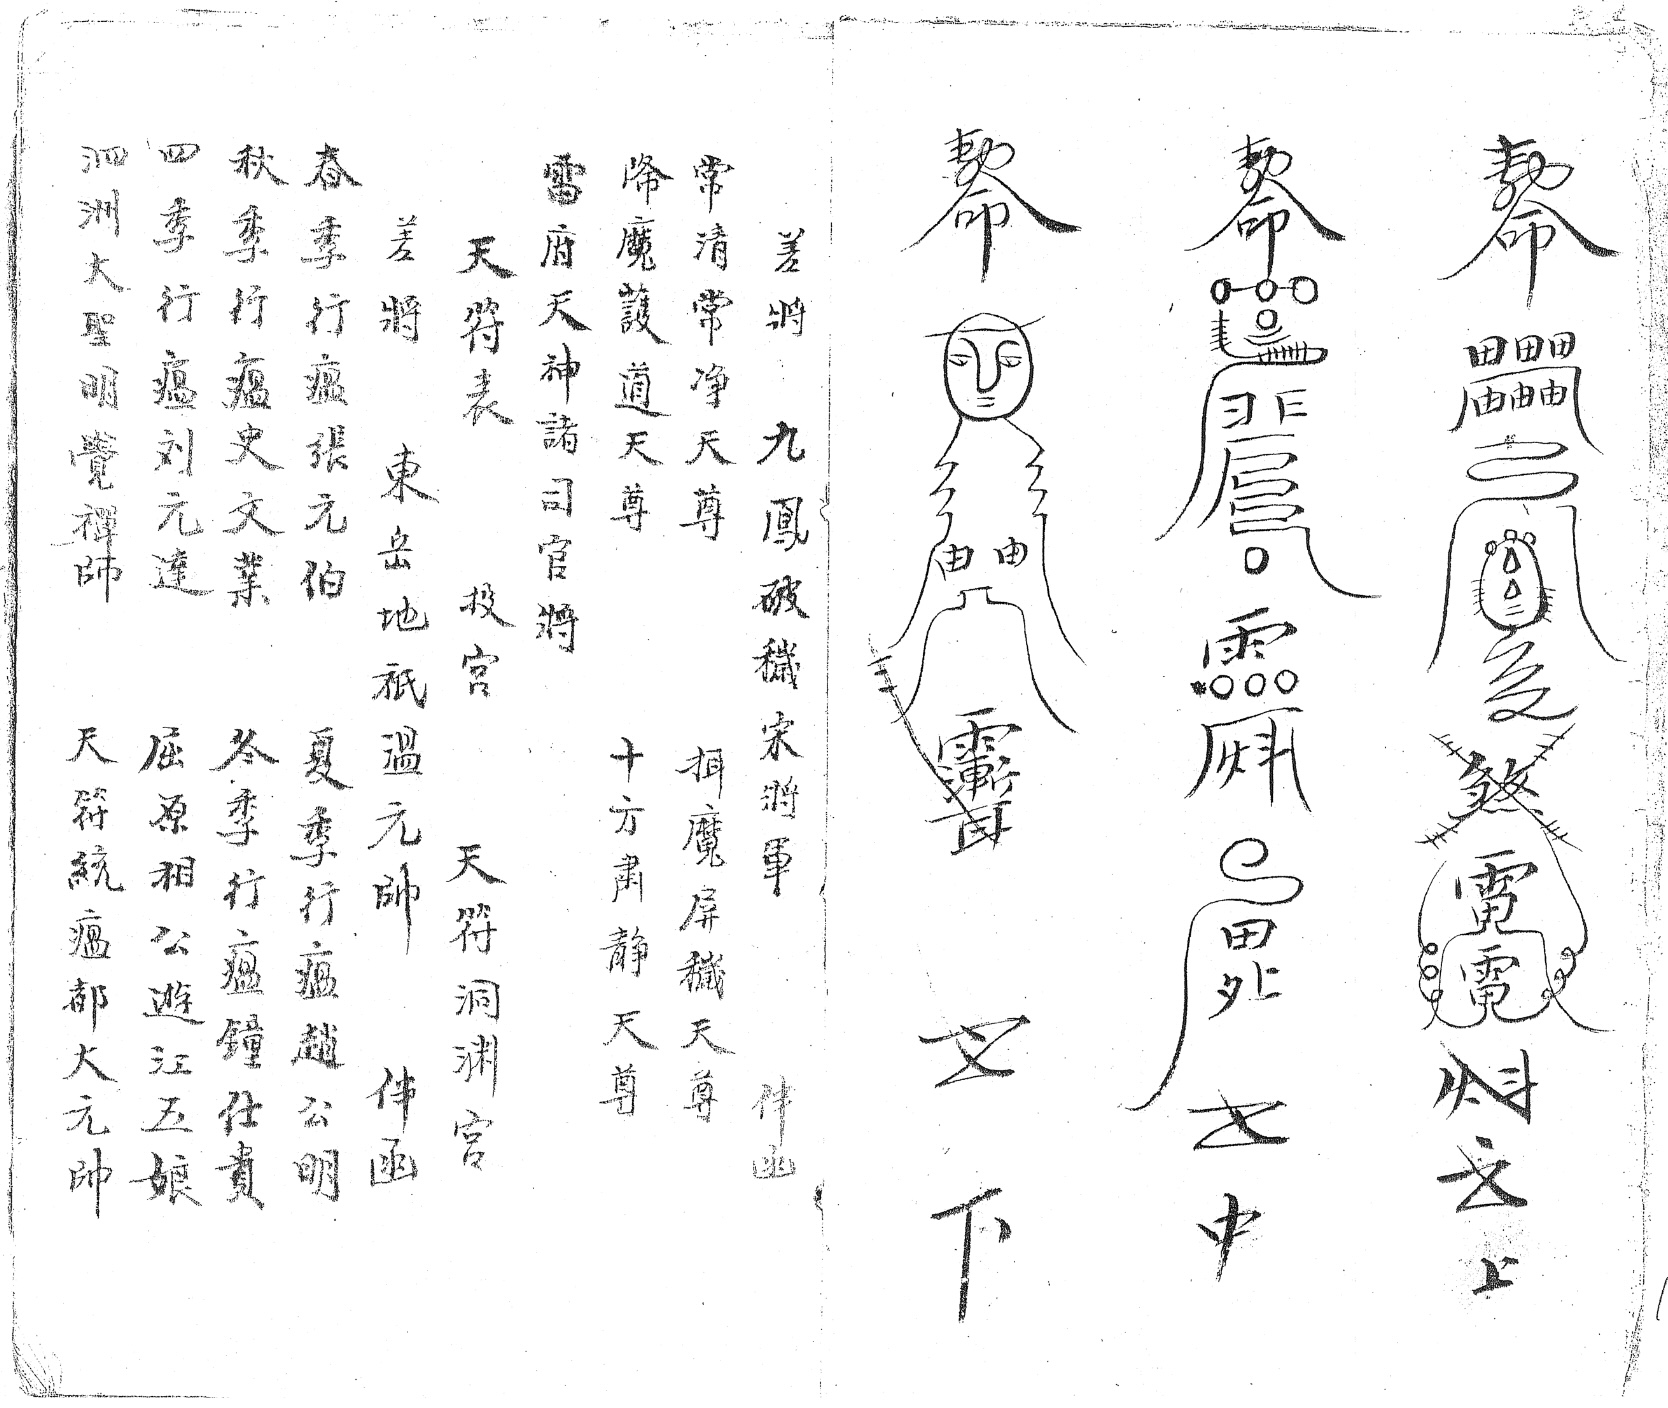 敕令 雷電 上
敕令 中
敕令 下
差將 九鳳破穢宋將軍 仹函
常清常净天尊 捛魔屏穢天尊
降魔護道天尊 十方肅静天尊
雷府天神諸司官將
天符表 投宮 天符洞渊宮
差將 東岳地祇溫元帥 仹函
春季行瘟張元伯 夏季行瘟趙公明
秋季行瘟史文業 冬季行瘟鐘仕貴
四季行瘟刘元達 屈原相公遊江五娘
泗洲大聖明覺禪師 天符統瘟都大元帥